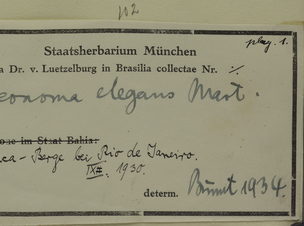 102
play. 1.
Staatsherbarium München
a Dr. v. Luetzelburg in Brasilia collectae Nr. 1/.
eonoma elegans Mart.
one im Staat Bahia:
ca - Berge bei Rio de Janeiro.
IX. 1930.
determ. Burret 1934.